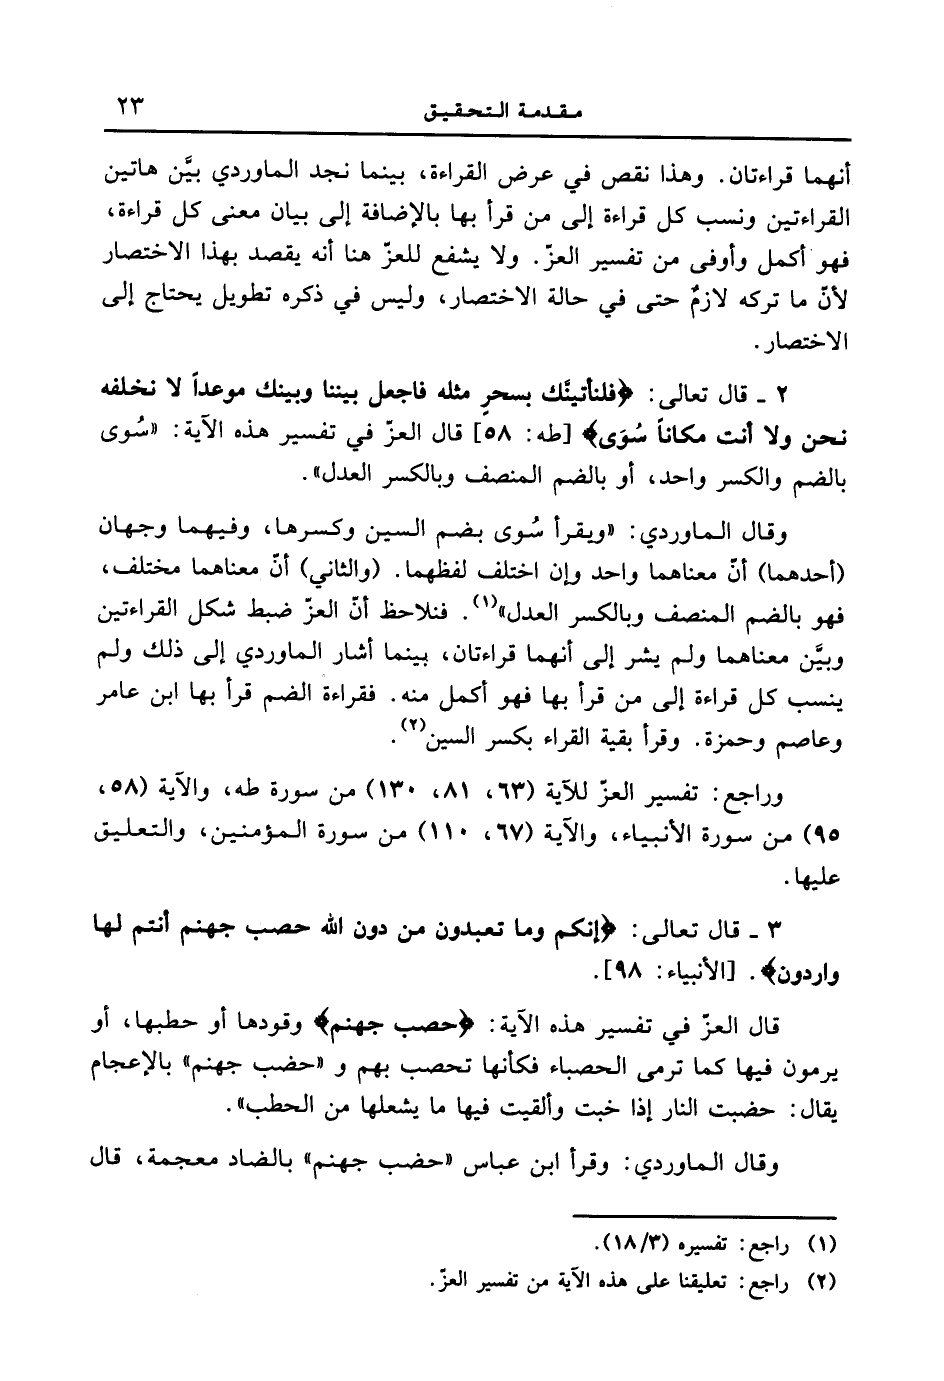 مقدمة التحقيق ٢٣
أنهما قراءتان. وهذا نقص في عرض القراءة، بينما نجد الماوردي بيَّن هاتين
القراءتين ونسب كل قراءة إلى من قرأ بها بالإضافة إلى بيان معنى كل قراءة،
فهو أكمل وأوفى من تفسير العزّ. ولا يشفع للعزّ هنا أنه يقصد بهذا الاختصار
لأنّ ما تركه لازمٌ حتى في حالة الاختصار، وليس في ذكره تطويل يحتاج إلى
الاختصار.
٢ ـ قال تعالى: ﴿فلنأتينَّك بسحرٍ مثله فاجعل بيننا وبينك موعداً لا نخلفه
نحن ولا أنت مكاناً سُوَى﴾ [طه: ٥٨] قال العزّ في تفسير هذه الآية: «سُوى
بالضم والكسر واحد، أو بالضم المنصف وبالكسر العدل».
وقال الماوردي: «ويقرأ سُوى بضم السين وكسرها، وفيهما وجهان
(أحدهما) أنّ معناهما واحد وإن اختلف لفظهما. (والثاني) أنّ معناهما مختلف،
فهو بالضم المنصف وبالكسر العدل»(١). فنلاحظ أنّ العزّ ضبط شكل القراءتين
وبيَّن معناهما ولم يشر إلى أنهما قراءتان، بينما أشار الماوردي إلى ذلك ولم
ينسب كل قراءة إلى من قرأ بها فهو أكمل منه. فقراءة الضم قرأ بها ابن عامر
وعاصم وحمزة. وقرأ بقية القراء بكسر السين(٢).
وراجع: تفسير العزّ للآية (٦٣، ٨١، ١٣٠) من سورة طه، والآية (٥٨،
٩٥) من سورة الأنبياء، والآية (٦٧، ١١٠) من سورة المؤمنين، والتعليق
عليها.
٣ ـ قال تعالى: ﴿إنكم وما تعبدون من دون الله حصب جهنم أنتم لها
واردون﴾. [الأنبياء: ٩٨].
قال العزّ في تفسير هذه الآية: ﴿حصب جهنم﴾ وقودها أو حطبها، أو
يرمون فيها كما ترمى الحصباء فكأنها تحصب بهم و «حضب جهنم» بالإعجام
يقال: حضبت النار إذا خبت وألقيت فيها ما يشعلها من الحطب».
وقال الماوردي: وقرأ ابن عباس «حضب جهنم» بالضاد معجمة، قال
(١) راجع: تفسيره (١٨/٣).
(٢) راجع: تعليقنا على هذه الآية من تفسير العزّ.